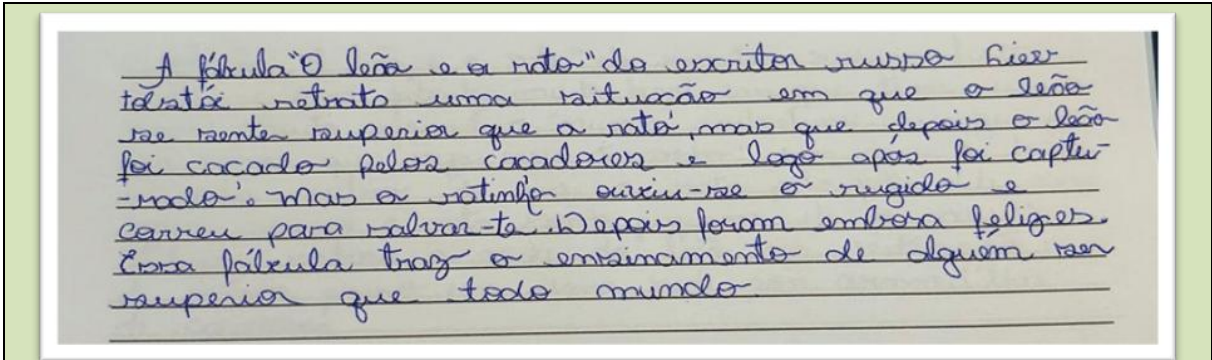 A fábula "O leão e o rato" do escritor russo Liev
tolstói retrata uma situação em que o leão
se sente superior que o rato, mas que depois o leão
foi cacado pelos cacadores e logo após foi captu-
-rado. Mas o ratinho ouviu-se o rugido e
correu para salvar-te. Depois foram embora felizes.
Essa fábula traz o ensinamento de alguém ser
superior que todo mundo.